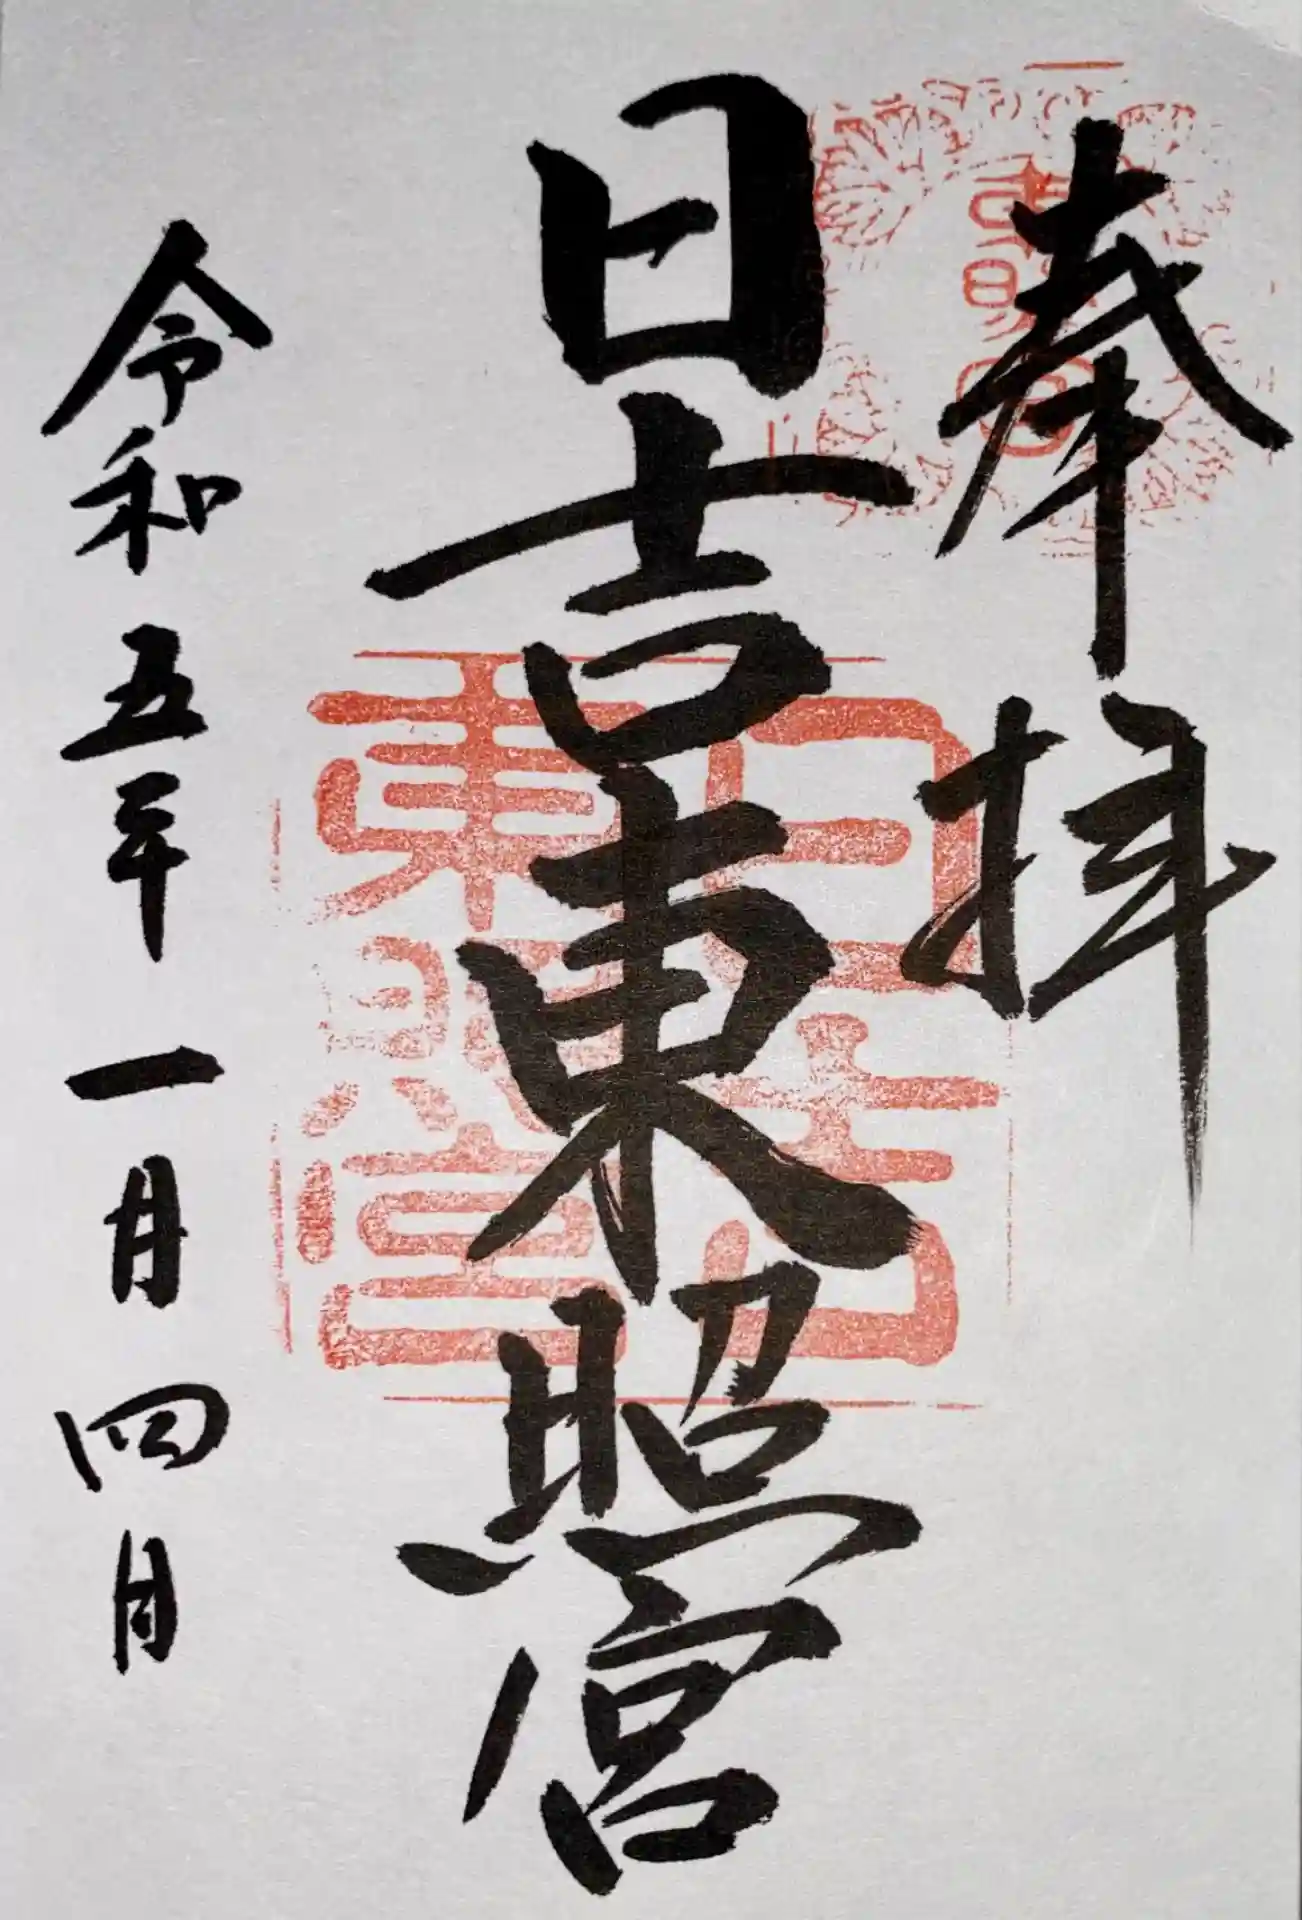 奉拝
日吉東照宮
日吉
東照宮
令和五年一月四日